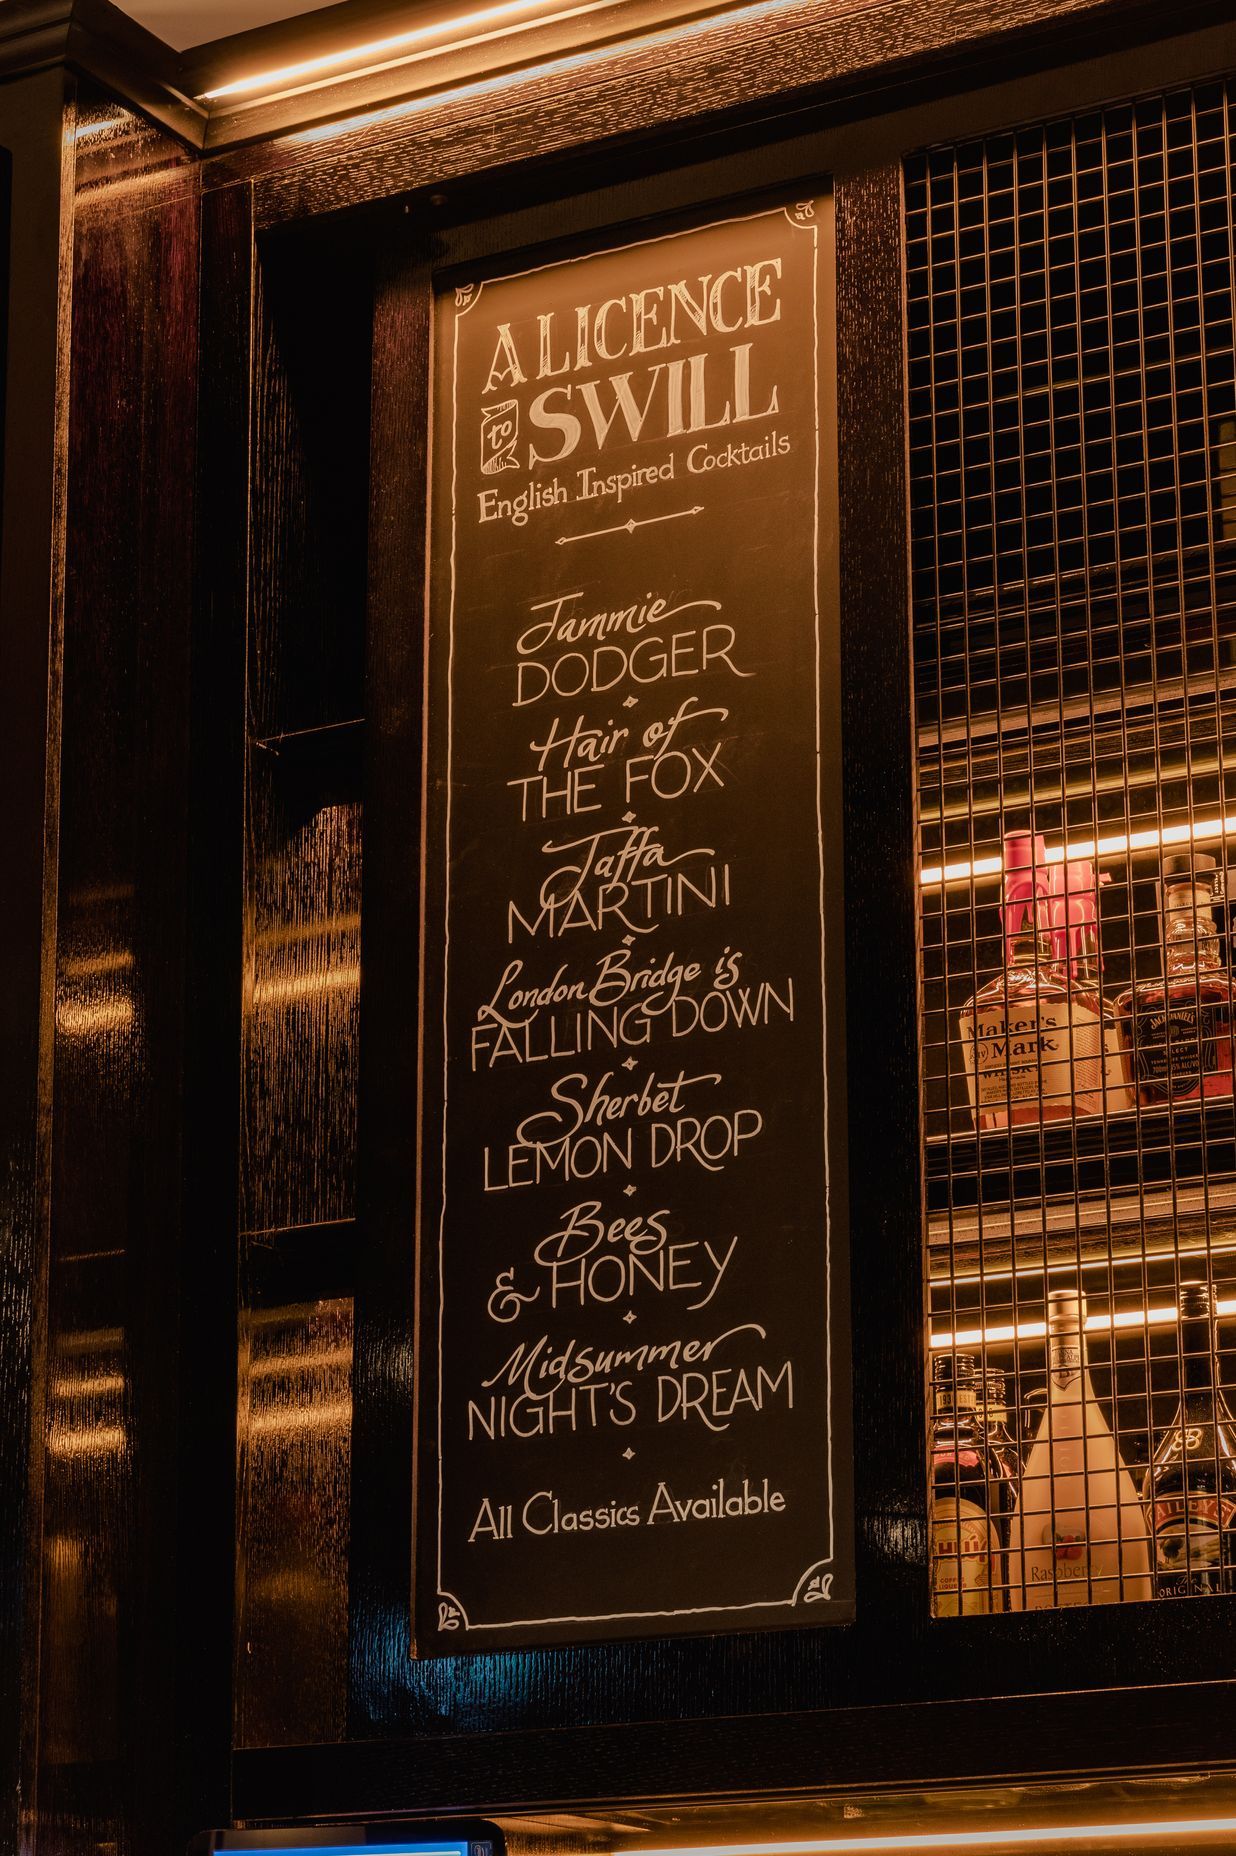 A LICENCE
to SWILL
English Inspired Cocktails
Jammie
DODGER
Hair of
THE FOX
Jaffa
MARTINI
London Bridge is
FALLING DOWN
Sherbet
LEMON DROP
Bees
& HONEY
Midsummer
NIGHT'S DREAM
All Classics Available
Maker's
Mark
WHISKY
JACK DANIEL'S
Raspberry
ORIGINAL